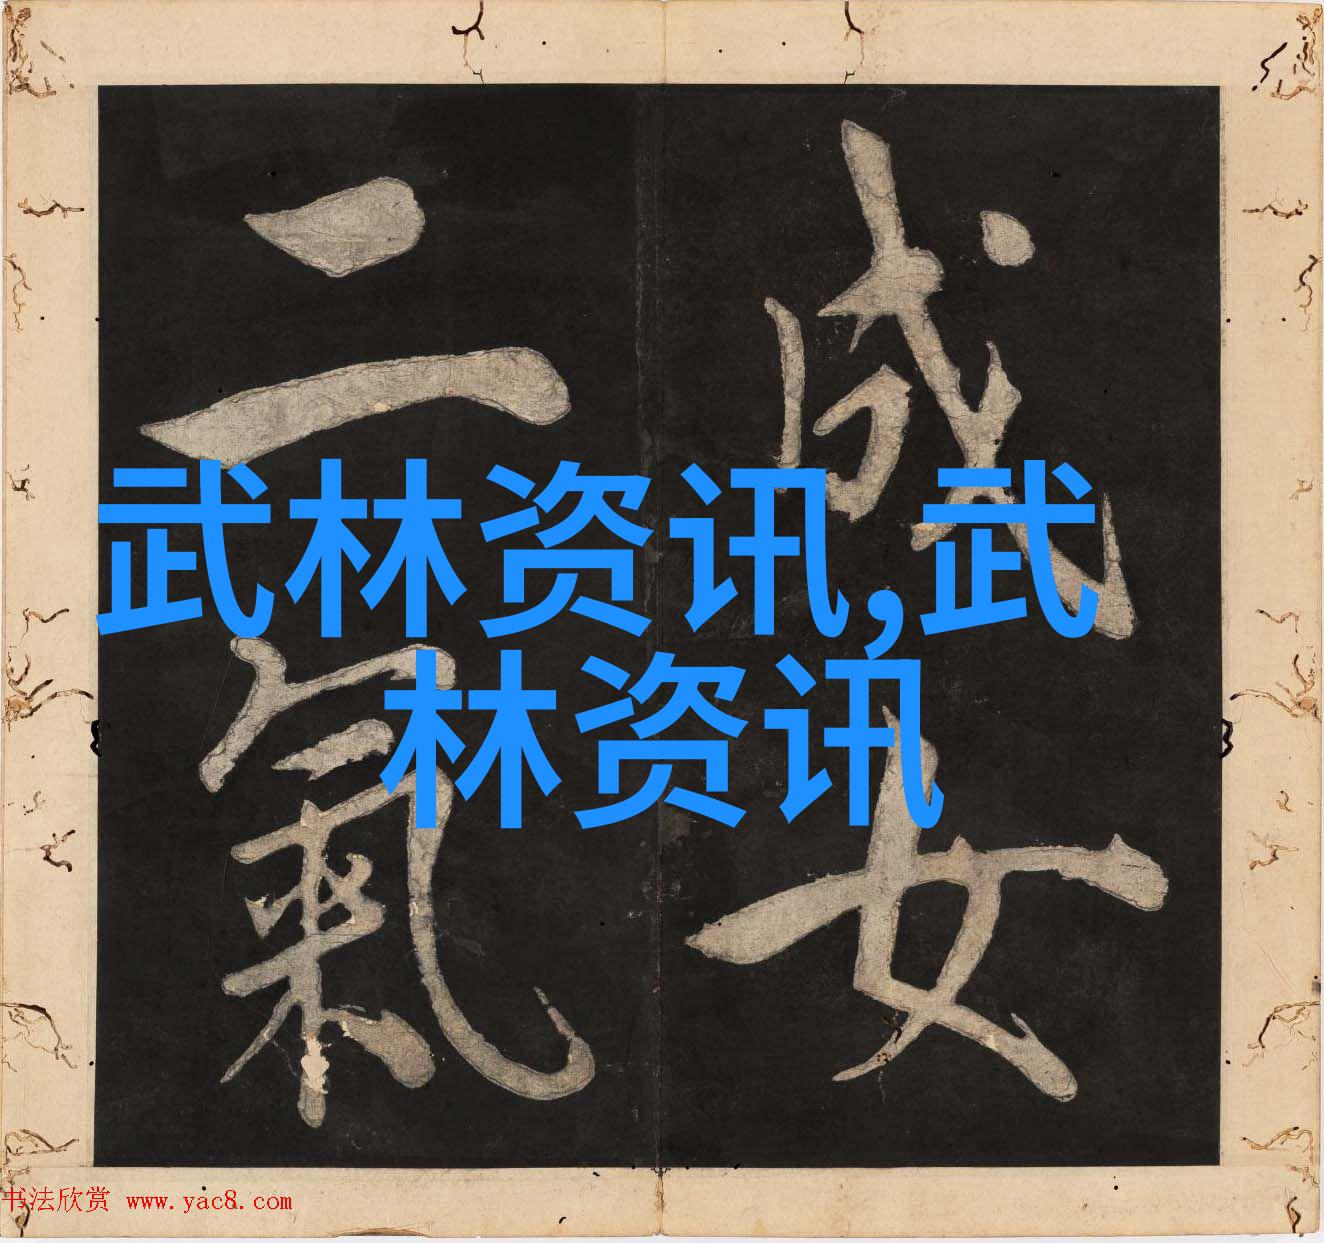 成女
二氣
武林资讯,武
林资讯
书法欣赏 www.yac8.com